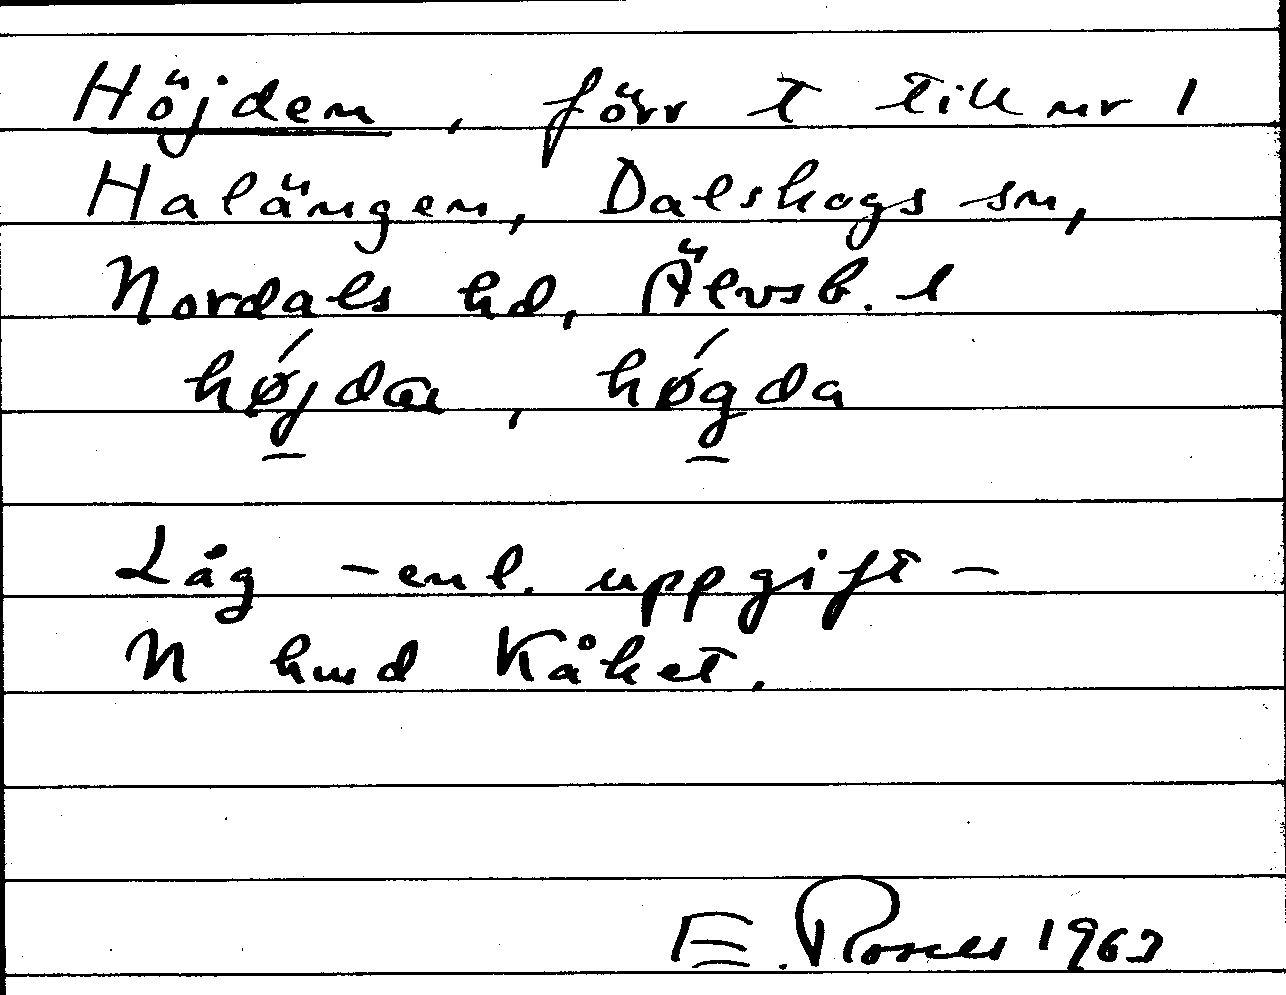 Höjden, förr t till nr 1
Halängen, Dalskogs sn,
Nordals hd, Älvsb. l
hǿjda, hǿgda
Låg - enl. uppgift -
N hmd Kåket.
E. 1963